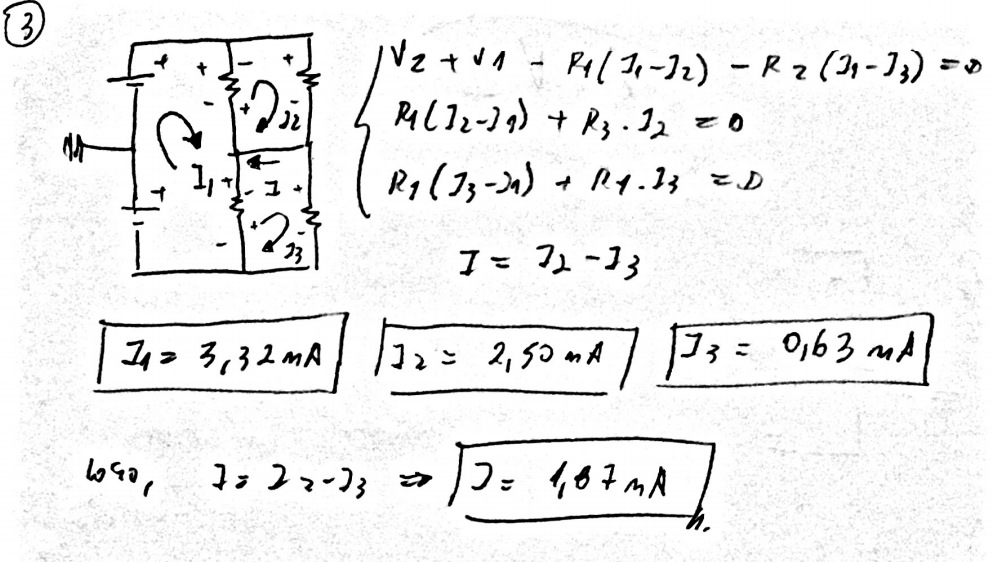 3
V2 + V1 - R1(I1-I2) - R2(I1-I3) = 0
R1(I2-I1) + R3.I2 = 0
R1(I3-I1) + R4.I3 = 0
+ + - +
- + - I2
I1 + - I +
- + - I3
I = I2 - I3
I1 = 3,32 mA I2 = 2,50 mA I3 = 0,63 mA
logo, I = I2-I3 ⇒ I = 1,87 mA